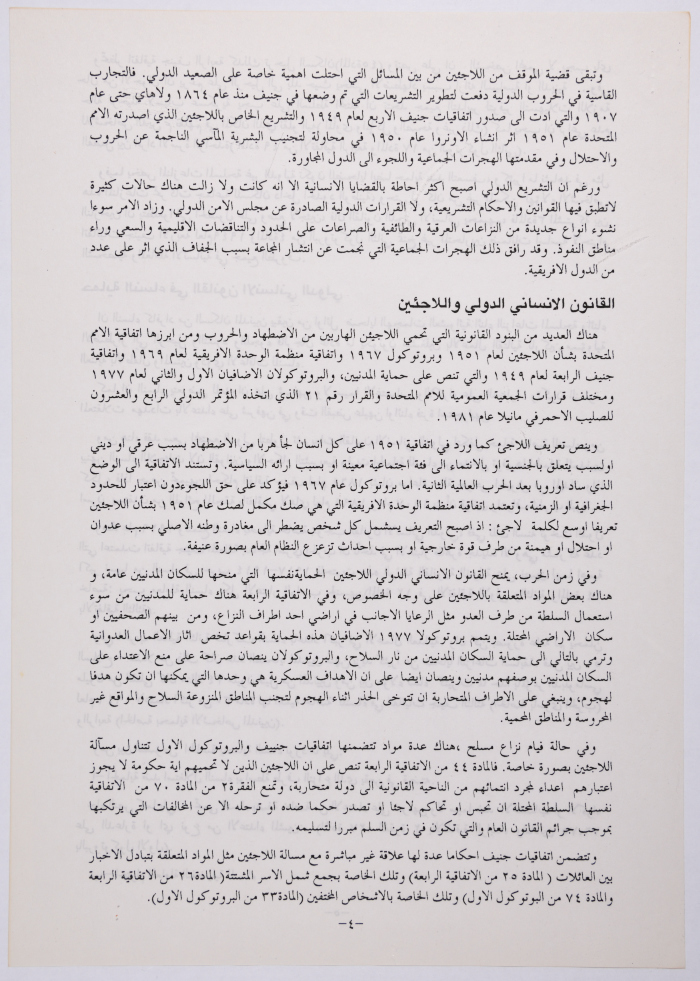 وتبقى قضية الموقف من اللاجئين من بين المسائل التي احتلت اهمية خاصة على الصعيد الدولي. فالتجارب
القاسية في الحروب الدولية دفعت لتطوير التشريعات التي تم وضعها في جنيف منذ عام ١٨٦٤ ولاهاي حتى عام
١٩٠٧ والتي ادت الى صدور اتفاقيات جنيف الاربع لعام ١٩٤٩ والتشريع الخاص باللاجئين الذي اصدرته الامم
المتحدة عام ١٩٥١ اثر انشاء الاونروا عام ١٩٥٠ في محاولة لتجنيب البشرية المآسي الناجمة عن الحروب
والاحتلال وفي مقدمتها الهجرات الجماعية واللجوء الى الدول المجاورة.
ورغم ان التشريع الدولي اصبح اكثر احاطة بالقضايا الانسانية الا انه كانت ولا زالت هناك حالات كثيرة
لاتطبق فيها القوانين والاحكام التشريعية، ولا القرارات الدولية الصادرة عن مجلس الامن الدولي. وزاد الامر سوءا
نشوء انواع جديدة من النزاعات العرقية والطائفية والصراعات على الحدود والتناقضات الاقليمية والسعي وراء
مناطق النفوذ. وقد رافق ذلك الهجرات الجماعية التي نجمت عن انتشار المجاعة بسبب الجفاف الذي اثر على عدد
من الدول الافريقية.
القانون الانساني الدولي واللاجئين
هناك العديد من البنود القانونية التي تحمي اللاجيئن الهاربين من الاضطهاد والحروب ومن ابرزها اتفاقية الامم
المتحدة بشأن اللاجئين لعام ١٩٥١ وبروتوكول ١٩٦٧ واتفاقية منظمة الوحدة الافريقية لعام ١٩٦٩ واتفاقية
جنيف الرابعة لعام ١٩٤٩ والتي تنص على حماية المدنيين، والبروتوكولان الاضافيان الاول والثاني لعام ١٩٧٧
ومختلف قرارات الجمعية العمومية للامم المتحدة والقرار رقم ٢١ الذي اتخذه المؤتمر الدولي الرابع والعشرون
للصليب الاحمرفي مانيلا عام ١٩٨١.
وينص تعريف اللاجئ كما ورد في اتفاقية ١٩٥١ على كل انسان لجأ هربا من الاضطهاد بسبب عرقي او ديني
اولسبب يتعلق بالجنسية او بالانتماء الى فئة اجتماعية معينة او بسبب ارائه السياسية. وتستند الاتفاقية الى الوضع
الذي ساد اوروبا بعد الحرب العالمية الثانية. اما بروتوكول عام ١٩٦٧ فيؤكد على حق اللجوءدون اعتبار للحدود
الجغرافية او الزمنية، وتعتمد اتفاقية منظمة الوحدة الافريقية التي هي صك مكمل لصك عام ١٩٥١ بشأن اللاجئين
تعريفا اوسع لكلمة لاجئ : اذ اصبح التعريف يسشمل كل شخص يضطر الى مغادرة وطنه الاصلي بسبب عدوان
او احتلال او هيمنة من طرف قوة خارجية او بسبب احداث تزعزع النظام العام بصورة عنيفة.
وفي زمن الحرب، يمنح القانون الانساني الدولي اللاجئين الحمايةنفسها التي منحها للسكان المدنيين عامة، و
هناك بعض المواد المتعلقة باللاجئين على وجه الخصوص، وفي الاتفاقية الرابعة هناك حماية للمدنيين من سوء
استعمال السلطة من طرف العدو مثل الرعايا الاجانب في اراضي احد اطراف النزاع، ومن بينهم الصحفيين او
سكان الاراضي المحتلة. ويتمم بروتوكولا ١٩٧٧ الاضافيان هذه الحماية بقواعد تخص اثار الاعمال العدوانية
وترمي بالتالي الى حماية السكان المدنيين من نار السلاح، والبروتوكولان ينصان صراحة على منع الاعتداء على
السكان المدنيين بوصفهم مدنيين وينصان ايضا على ان الاهداف العسكرية هي وحدها التي يمكنها ان تكون هدفا
لهجوم، وينبغي على الاطراف المتحاربة ان تتوخى الحذر اثناء الهجوم لتجنب المناطق المنزوعة السلاح والمواقع غير
المحروسة والمناطق المحمية.
وفي حالة قيام نزاع مسلح ،هناك عدة مواد تتضمنها اتفاقيات جنييف والبروتوكول الاول تتناول مسآلة
اللاجئين بصورة خاصة. فالمادة ٤٤ من الاتفاقية الرابعة تنص على ان اللاجئين الذين لا تحميهم اية حكومة لا يجوز
اعتبارهم اعداء لمجرد انتمائهم من الناحية القانونية الى دولة متحاربة، وتمنع الفقرة٢ من المادة ٧٠ من الاتفاقية
نفسها السلطة المحتلة ان تحبس او تحاكم لاجئا او تصدر حكما ضده او ترحله الا عن المخالفات التي يرتكبها
بموجب جرائم القانون العام والتي تكون في زمن السلم مبررا لتسليمه.
وتتضمن اتفاقيات جنيف احكاما عدة لها علاقة غير مباشرة مع مسالة اللاجئين مثل المواد المتعلقة بتبادل الاخبار
بين العائلات ( المادة ٢٥ من الاتفاقية الرابعة) وتلك الخاصة بجمع شمل الاسر المشتتة( المادة٢٦ من الاتفاقية الرابعة
والمادة ٧٤ من البوتوكول الاول) وتلك الخاصة بالاشخاص المختفين (المادة٣٣ من البروتوكول الاول).
-٤-